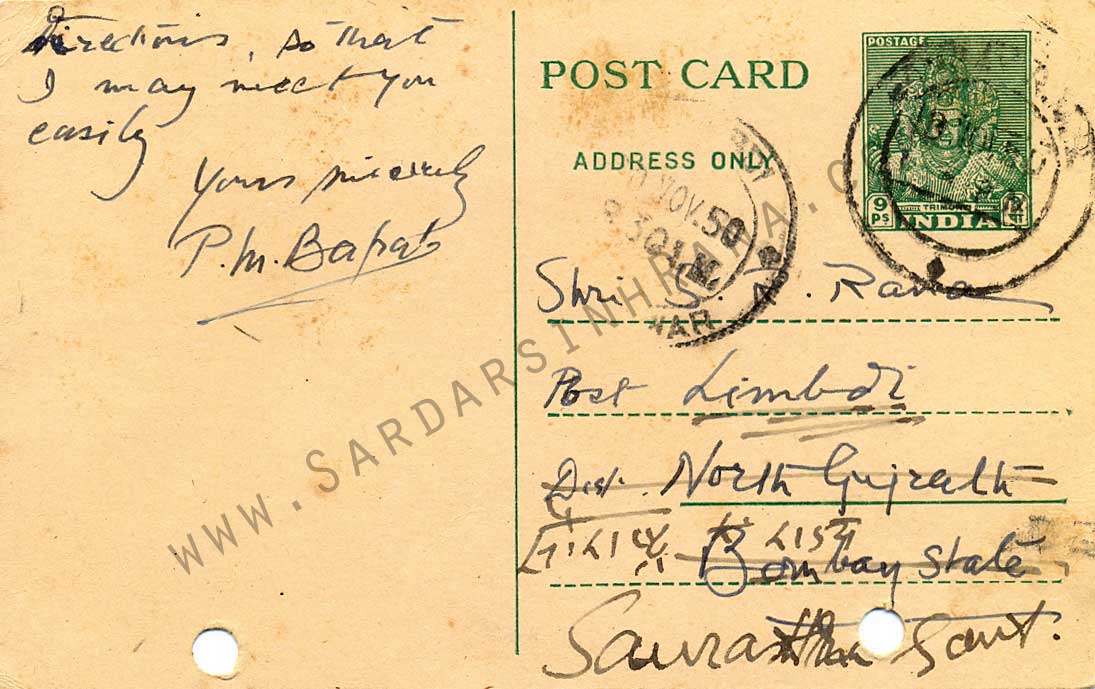 Directions, so that
I may meet you
easily
Yours sincerely
P. M. Bapat
POST CARD
ADDRESS ONLY
POSTAGE
9 PS
TRIMURTI
INDIA
NOV. 50
8 30 A.M.
Shri S. R. Rana
Post Limbdi
Dist. North Gujrath
Bombay State
Saurashtra Govt.
WWW.SARDARSINHRANA.COM